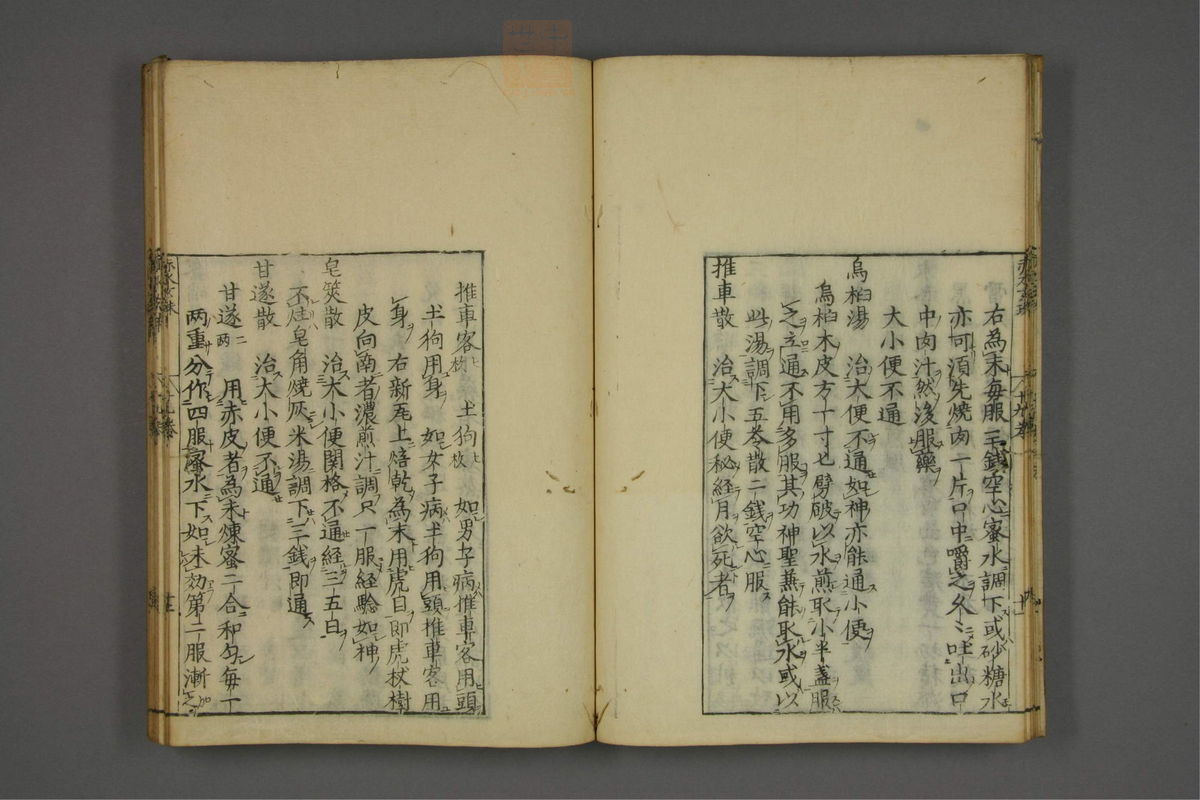 右為末毎服三錢空心蜜水調下或砂糖水
亦可湏先燒肉一片口中嚼之久〻吐出口
中肉汁然後服藥
大小便不通
烏桕湯　治大便不通如神亦能通小便
烏桕木皮方一寸七劈破以水煎取小半盞服
之立通不用多服其功神聖兼能取水或以
此湯調下五苓散二錢空心服
推車散　治大小便秘経月欲死者
推車客七枚　土狗七枚　如男子病推車客用頭
土狗用身　如女子病土狗用頭推車客用
身　右新瓦上焙乾為末用虎目即虎杖樹
皮向南者濃煎汁調只一服経驗如神
皂筴散　治大小便関格不通経三五日
不蛀皂角燒灰米湯調下三錢即通
甘遂散　治大小便不通
甘遂二両　用赤皮者為末煉蜜二合和匀毎一
両重分作四服蜜水下如未効第二服漸之
赤水玄珠